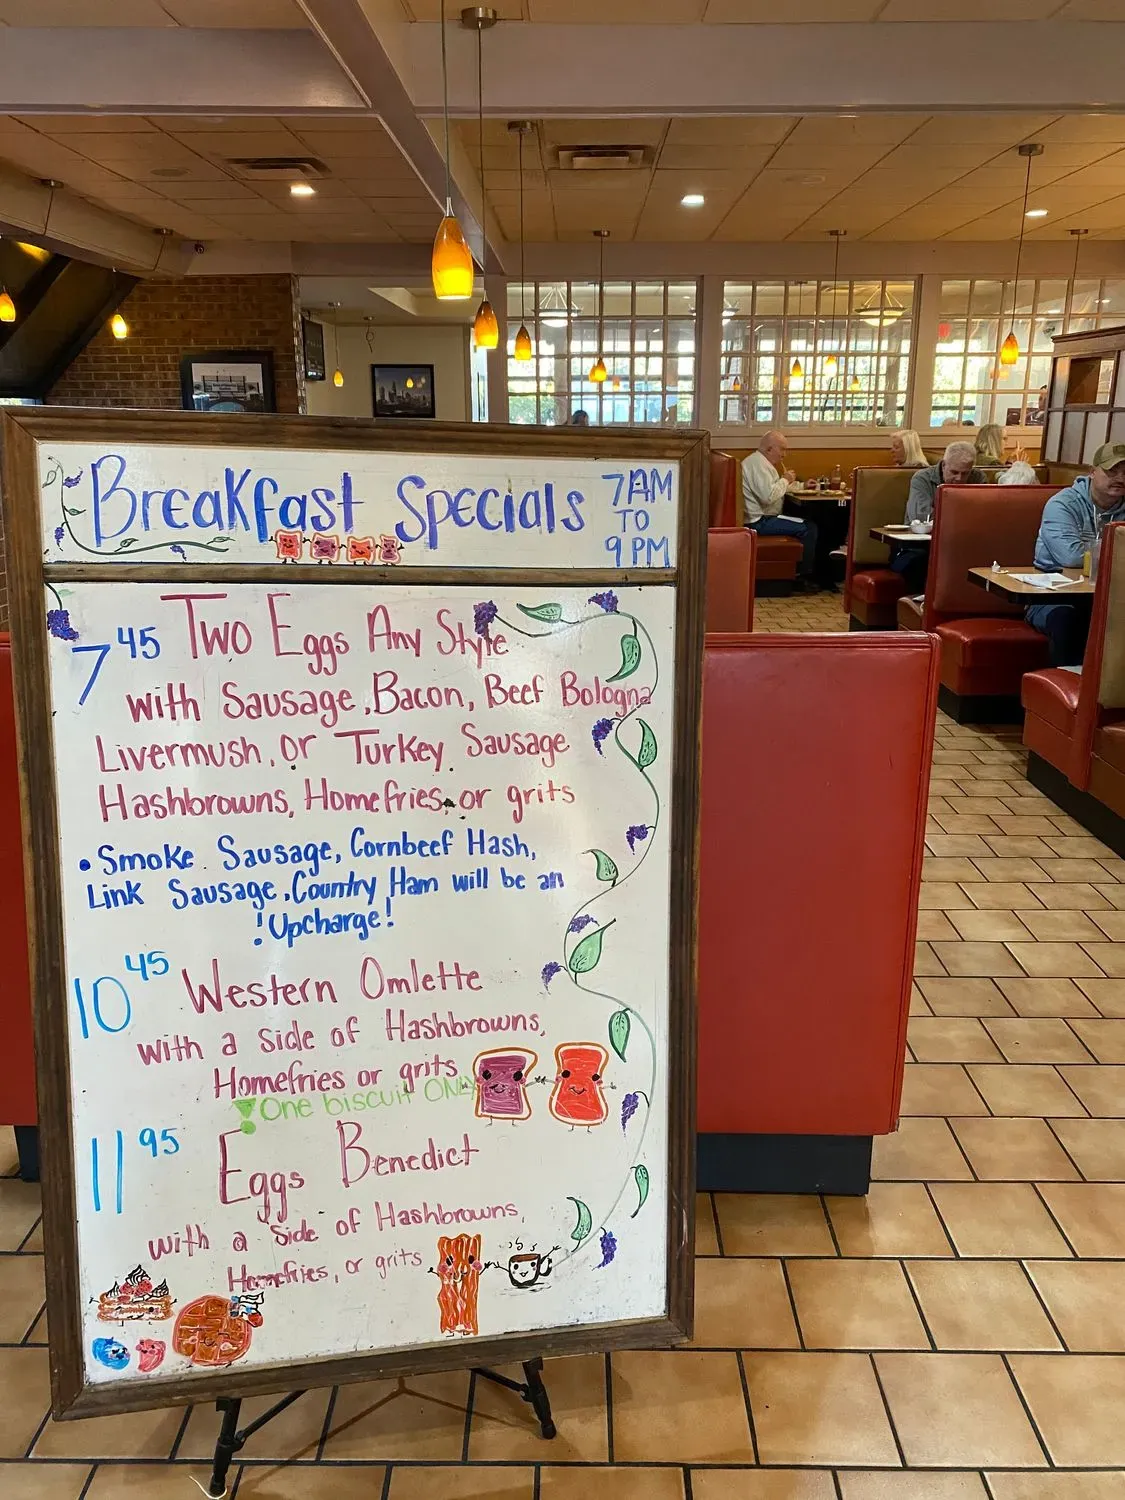 Breakfast Specials
7AM
TO
9PM
7 45 Two Eggs Any Style
with Sausage, Bacon, Beef Bologna
Livermush, or Turkey Sausage
Hashbrowns, Homefries, or grits
• Smoke Sausage, Cornbeef Hash,
Link Sausage, Country Ham will be an
! Upcharge!
10 45 Western Omlette
with a side of Hashbrowns,
Homefries or grits
! One biscuit ONLY
11 95 Eggs Benedict
with a side of Hashbrowns,
Homefries, or grits